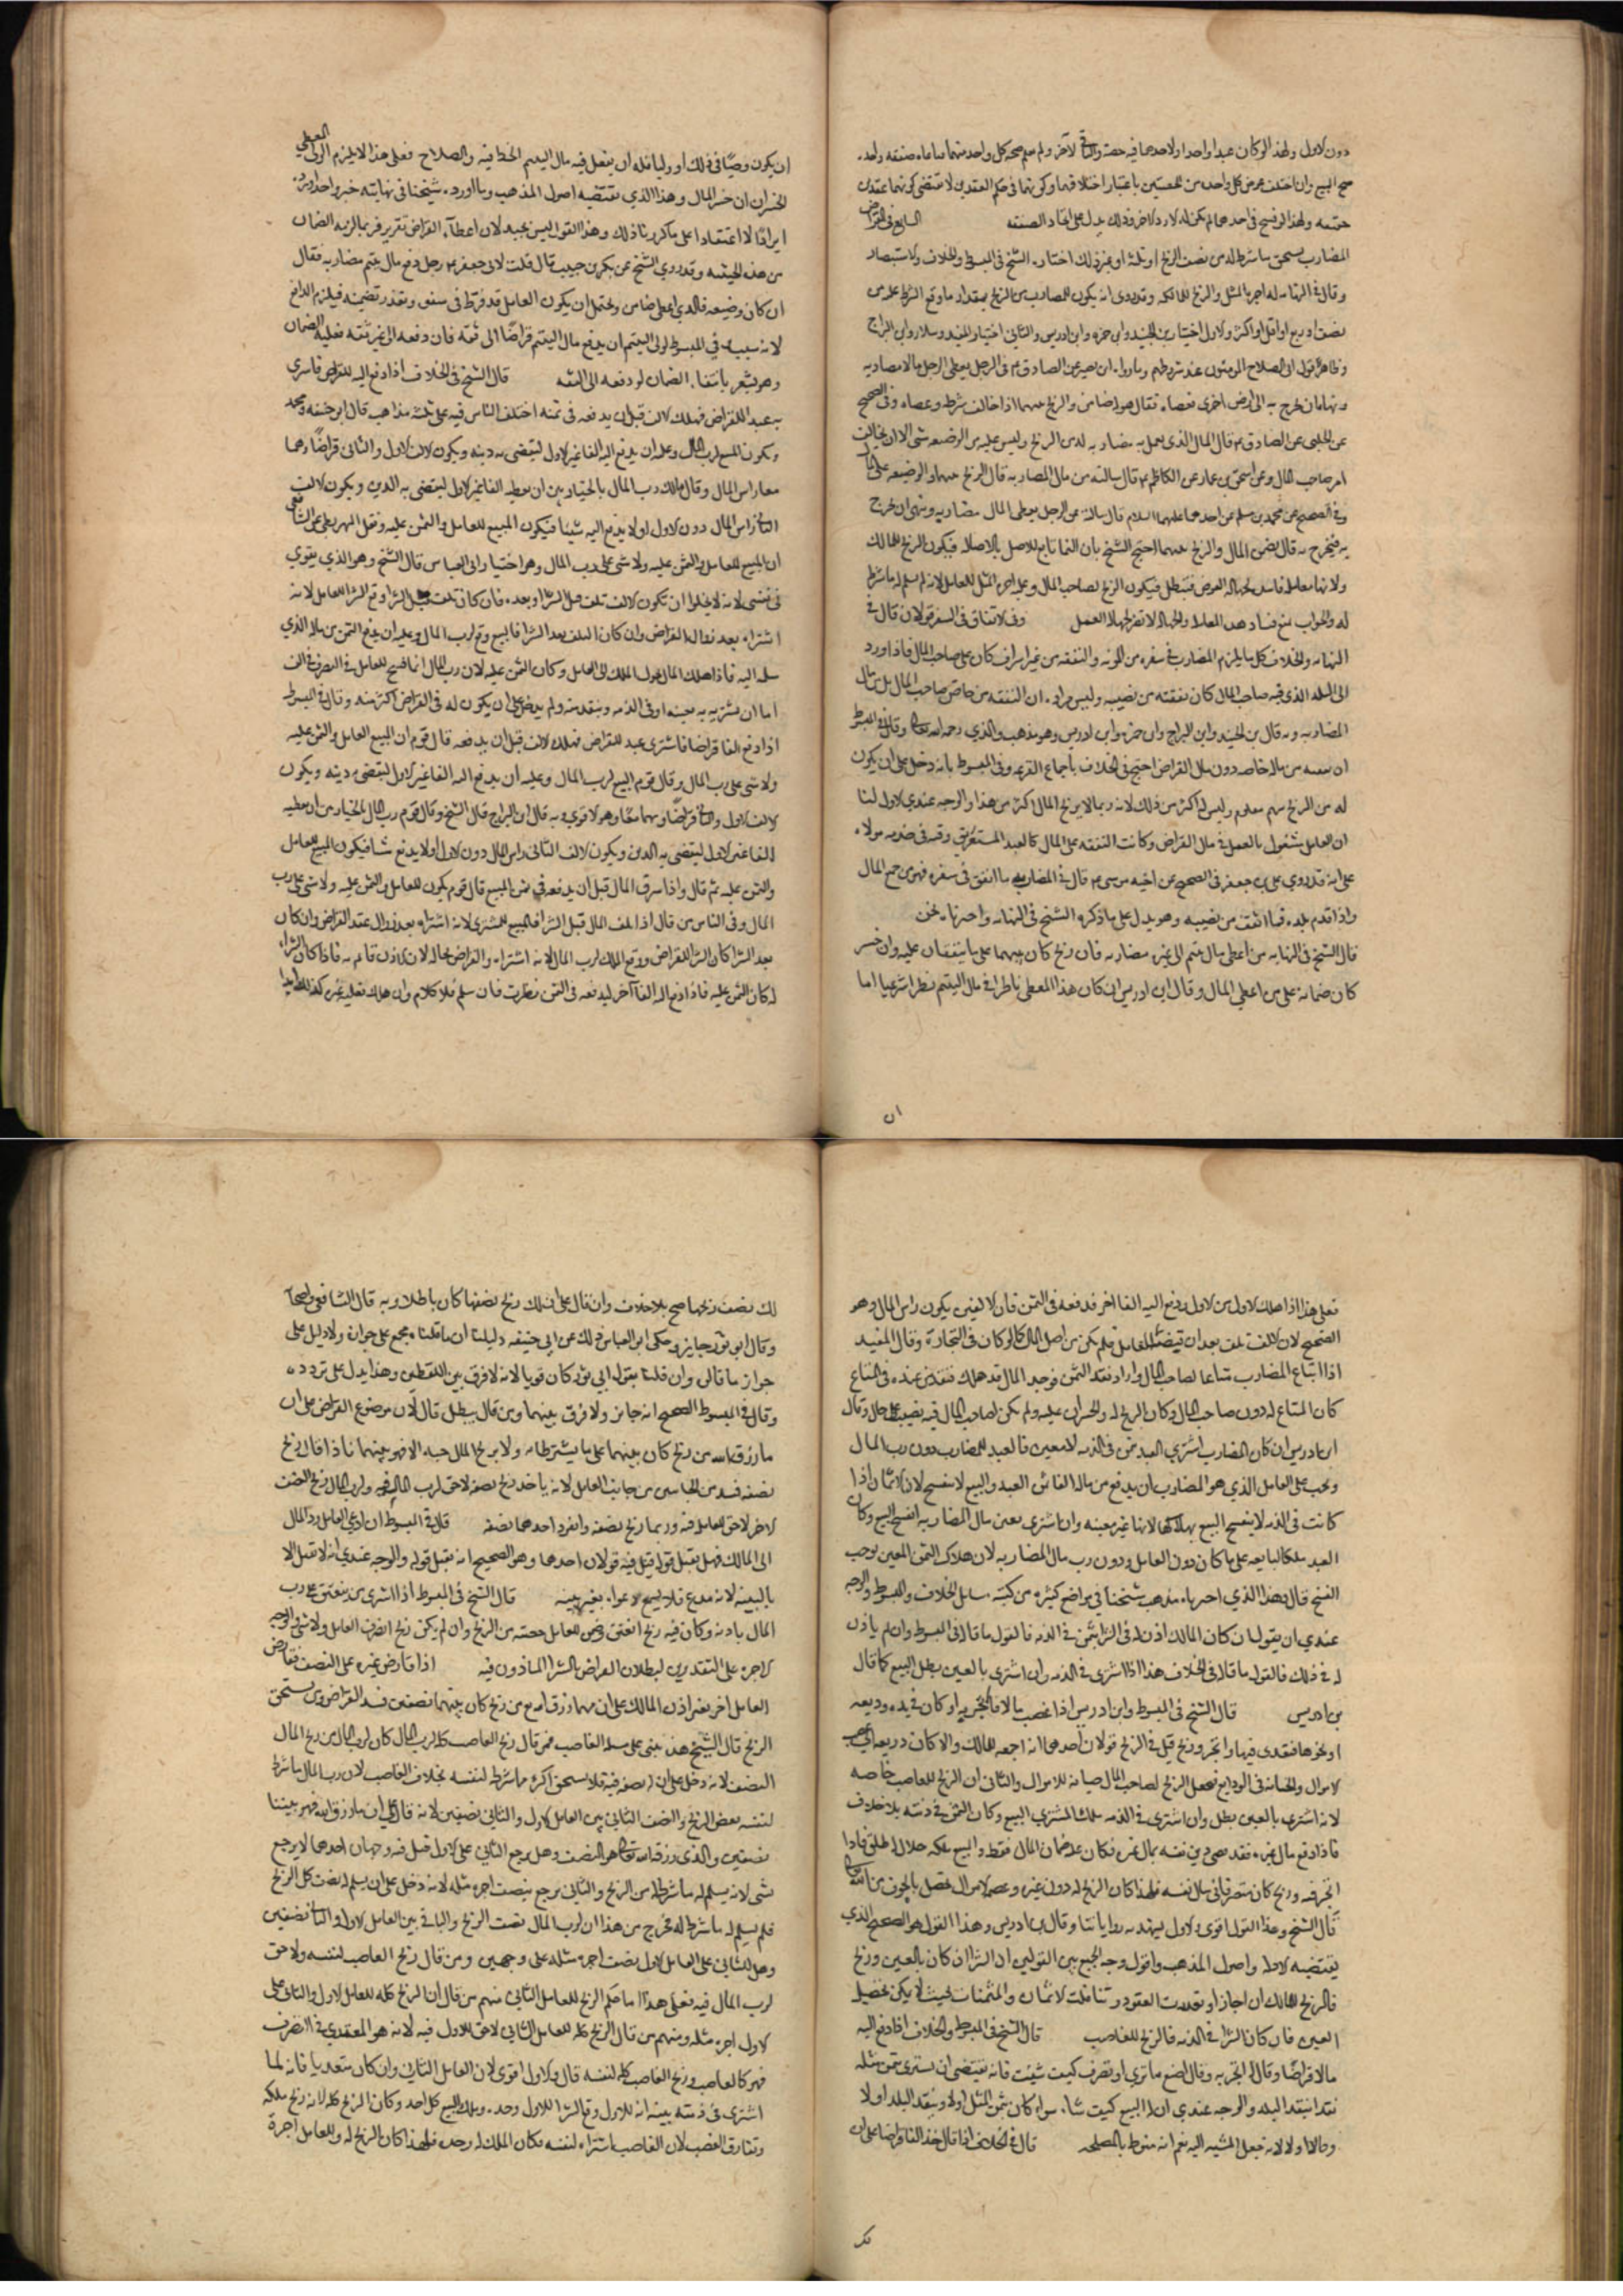 دون الاول ولهذا لو كان عبدا واحدا ولاحدهما فيه حصة والباقي لآخر ولم يعلم صحة كل واحد منهما صفقة واحدة
صح البيع وان اختلف عوض كل واحد من باعتبار اختلاف قيمتها وكونهما في حكم العقدين لا يقتضي كونهما عقدين
حقيقة ولهذا لو فسخ في احدهما لم يكن له الا رد الاخر وذلك يدل على اتحاد الصفقة السابع في القراض
المضارب يستحق ما شرط له من نصف الربح او ثلثه او غير ذلك اختاره الشيخ في المبسوط والخلاف والاستبصار
وقال في النهاية له اجرة المثل والربح للمالك وقد روى انه يكون للمضارب من الربح بمقدار ما وقع الشرط عليه من
نصف او ربع او اقل او اكثر والاول اختيار ابن الجنيد وابن حمزة وابن ادريس والثاني اختيار المفيد وسلار وابن البراج
وظاهر قول ابي الصلاح المؤمنون عند شروطهم وما رواه ابو بصير عن الصادق ع في الرجل يعطي الرجل مالا مضاربة
وينهاه ان يخرج به الى ارض اخرى فعصاه فقال هو له ضامن والربح بينهما اذا خالف شرطه وعصاه وفي الصحيح
عن الحلبي عن الصادق ع قال المال الذي يعمل به مضاربة له من الربح وليس عليه من الوضيعة شي الا ان يخالف
امر صاحب المال وعن اسحق بن عمار عن الكاظم ع قال سألته عن مال المضاربة قال الربح بينهما والوضيعة على المال
وفي الصحيح عن محمد بن مسلم عن احدهما عليهما السلام قال سألته عن الرجل يعطي المال مضاربة وينهى ان يخرج
به فيخرج به قال يضمن المال والربح بينهما احتج الشيخ بان النماء تابع للاصل بالاصالة فيكون الربح للمالك
ولانها معاملة فاسدة لجهالة العوض فتبطل فيكون الربح لصاحب المال وعليه اجرة المثل للعامل لانه لم يسلم له ما شرط
له والجواب نمنع فساد هذه المعاملة والجهالة لا تضر كجهالة العمل وفي الانفاق في السفر قولان قال في
النهاية والخلاف كل ما يلزم المضارب في سفره من المؤنة والنفقة من غير اسراف كان على صاحب المال فاذا ورد
الى البلد الذي فيه صاحب المال كان نفقته من نصيبه وليس مراده ان النفقة من خاص صاحب المال بل من مال
المضاربة وبه قال ابن الجنيد وابن البراج وابن حمزة وابن ادريس وهو مذهب والدي رحمه الله تعالى وقال في المبسوط
ان نفقته من ماله خاصة دون مال القراض احتج في الخلاف باجماع الفرقة وفي المبسوط بانه دخل على ان يكون
له من الربح سهم معلوم وليس له اكثر من ذلك لانه ربما لا يربح المال اكثر من هذا والوجه عندي الاول لنا
ان العامل مشغول بالعمل في مال القراض وكانت النفقة على المال كالعبد المستغرق وقته في خدمة مولاه
على انه قد روى علي بن جعفر في الصحيح عن اخيه موسى ع قال في المضارب ما انفق في سفره فهو من جميع المال
واذا قدم بلده فما انفق من نصيبه وهو يدل على ما ذكره الشيخ في النهاية واخترناه نحن
قال الشيخ في النهاية من اعطى مال يتيم الى غيره مضاربة فان ربح كان بينهما على ما يتفقان عليه وان خسر
كان ضمانه على من اعطى المال وقال ابن ادريس ان كان هذا المعطي ناظرا في مال اليتيم نظرا شرعيا اما
ان
ان يكون وصيا في ذلك او وليا فله ان يفعل فيه مال اليتيم الحظ فيه والصلاح فعلى هذا لا يلزم الولي المعطي
الخسران ان خسر المال وهذا الذي تقتضيه اصول المذهب وما اورده شيخنا في نهايته خبر واحد اورده
ايرادا لا اعتقادا على ما كررنا ذلك وهذا القول ليس بجيد لان اعطاء القراض تغرير فربما لزمه الضمان
من هذه الحيثية وقد روى الشيخ عن بكر بن حبيب قال قلت لابي جعفر ع رجل دفع مال يتيم مضاربة فقال
ان كان وضيعة فالذي اعطى ضامن ويحتمل ان يكون العامل قد فرط في سفر وتعذر تضمينه فيلزم الدافع
لانه سببه وفي المبسوط لولي اليتيم ان يدفع مال اليتيم قراضا الى ثقة فان دفعه الى غير ثقة فعليه الضمان
وهو يشعر بانتفاء الضمان لو دفعه الى الثقة قال الشيخ في الخلاف اذا دفع اليه للقراض فاشترى
به عبدا للقراض فهلك الالف قبل ان يدفعه في ثمنه اختلف الناس فيه على ثلثة مذاهب قال ابو حنيفة ومحمد
ويكون المبيع لرب المال وعليه ان يدفع اليه الفا غير الاول ليقضي به دينه ويكون الالف الاول والثاني قراضا وهما
معا راس المال وقال مالك رب المال بالخيار بين ان يعطيه الفا غير الاول ليقضي به الدين ويكون الالف
الثاني راس المال دون الاول او لا يدفع اليه شيئا فيكون المبيع للعامل والثمن عليه ونقل البويطي عن الشافعي
ان المبيع للعامل والثمن عليه ولا شي على رب المال وهو اختيار ابي العباس قال الشيخ وهو الذي يقوى
في نفسي لانه لا يخلو ان تكون الالف تلف قبل الشراء او بعده فان كان تلف قبل الشراء وقع الشراء للعامل لانه
اشتراه بعد زوال القراض وان كان التلف بعد الشراء فالبيع وقع لرب المال وعليه ان يدفع الثمن من ماله الذي
سلمه اليه فاذا هلك المال تحول الملك الى العامل وكان الثمن عليه لان رب المال انما فسح للعامل في التصرف في الف
اما ان يشتريه به بعينه او في الذمة وينقد منه ولم يدخل على ان يكون له في القراض اكثر منه وقال في المبسوط
اذا دفع الفا قراضا فاشترى عبدا للقراض فهلك الالف قبل ان يدفعه قال قوم ان المبيع للعامل والثمن عليه
ولا شي على رب المال وقال قوم المبيع لرب المال وعليه ان يدفع اليه الفا غير الاول ليقضي دينه ويكون
الالف الاول والثاني قراضا وهما معا وهو الاقوى وبه قال ابن البراج قال الشيخ وقال قوم رب المال بالخيار بين ان يعطيه
الفا غير الاول ليقضي به الدين ويكون الالف الثاني راس المال دون الاول او لا يدفع شيئا فيكون المبيع للعامل
والثمن عليه ثم قال واذا سرق المال قبل ان يدفعه في ثمن المبيع قال قوم يكون للعامل والثمن عليه ولا شي على رب
المال وفي الناس من قال اذا تلف المال قبل الشراء فالمبيع للمشتري لانه اشتراه بعد زوال عقد القراض وان كان
بعد الشراء كان الشراء للقراض ووقع الملك لرب المال لانه اشتراه والقراض بحاله لان الاذن قائم به فاذا كان الشراء
له كان الثمن عليه فاذا دفع اليه الفا آخر ليدفعه في الثمن نظرت فان سلم فلا كلام وان هلك فعليه غيره كذلك ابدا
فعلى هذا اذا هلك الاول من الاول ودفع اليه الفا اخر فدفعه في الثمن فان الالفين يكون راس المال وهو
الصحيح لان الالف تلف بعد ان قبضه العامل فلم يكن من اصل المال كما لو كان في التجارة وقال المفيد
اذا ابتاع المضارب متاعا لصاحب المال واراد نقد الثمن فوجد المال قد هلك فنقد من عنده في المتاع
كان المتاع له دون صاحب المال وكان الربح له والخسران عليه ولم يكن لصاحب المال فيه نصيب على حال وقال
ابن ادريس ان كان المضارب اشترى العبد بثمن في الذمة لا معين فالعبد للمضارب دون رب المال
ويجب على العامل الذي هو المضارب ان يدفع من ماله الفا ثمن العبد والبيع لا ينفسخ لان الاثمان اذا
كانت في الذمة لا ينفسخ البيع بهلاكها لانها غير معينة وان اشترى بعين مال المضاربة انفسخ البيع وكان
العبد ملكا لبايعه على ما كان دون العامل ودون رب مال المضاربة لان هلاك الثمن المعين يوجب
الفسخ قال وهذا الذي اخترناه مذهب شيخنا في مواضع كثيرة من كتبه مسائل الخلاف والمبسوط والوجه
عندي ان يقول ان كان المالك اذن له في الشراء بثمن في الذمة فالقول ما قاله في المبسوط وان لم ياذن
له في ذلك فالقول ما قاله في الخلاف هذا اذا اشترى في الذمة وان اشترى بالعين بطل البيع كما قال
بن ادريس قال الشيخ في المبسوط وابن ادريس اذا غصب مالا فاتجر به او كان في يده وديعة
او نحوها فتعدى فيها واتجر وربح قيل في الربح قولان احدهما انه اجمع للمالك والا كان ذريعة الى غصب
الاموال والخيانة في الودايع فجعل الربح لصاحب المال صيانة للاموال والثاني ان الربح للغاصب خاصة
لانه اشترى بالعين بطل وان اشترى في الذمة ملك المشتري المبيع وكان الثمن في ذمته بلا خلاف
فاذا دفع مال غيره فقد قضى دين نفسه بمال غيره فكان عليه ضمان المال فقط والمبيع ملكه حلال له طلق فاذا
اتجر فيه وربح كان متصرفا في مال نفسه فلهذا كان الربح له دون غيره وعصمة الاموال تحصل بالخوف من الله تعالى
قال الشيخ وهذا القول اقوى والاول يشهد به رواياتنا وقال بن ادريس وهذا القول هو الصحيح الذي
يقتضيه الادلة واصول المذهب واقول وجه الجمع بين القولين ان الشراء ان كان بالعين وربح
فالربح للمالك ان اجاز او تعددت العقود وتناقلت الاثمان والمثمنات بحيث لا يمكن تحصيل
العين فان كان الشراء في الذمة فالربح للغاصب قال الشيخ في المبسوط والخلاف اذا دفع اليه
مالا قراضا وقال له اتجر به وقال اصنع ما ترى او تصرف كيف شئت فانه يقتضي ان يشتري بثمن مثله
نقدا بنقد البلد والوجه عندي ان له البيع كيف شاء سواء كان بثمن المثل او لا وبنقد البلد او لا
وحالا او لا لانه جعل المشية اليه نعم انه منوط بالمصلحة قال في الخلاف اذا قال خذ الفا قراضا على ان
لك
لك نصف ربحها صح بلا خلاف وان قال على ان لك ربح نصفها كان باطلا وبه قال الشافعي واصحابه
وقال ابو ثور جايز وحكى ابو العباس ذلك عن ابي حنيفة دليلنا ان ما قلناه مجمع على جوازه ولا دليل على
جواز ما قالوه وان قلنا بقول ابي ثور كان قويا لانه لا فرق بين اللفظين وهذا يدل على تردده
وقال في المبسوط الصحيح انه جائز ولا فرق بينهما ومن قال يبطل قال لان موضوع القراض على ان
ما رزق الله من ربح كان بينهما على ما يشترطانه ولا يربح المال حبة الا فهو بينهما فاذا قال ربح
نصفه فسد من الجانبين من جانب العامل لانه ياخذ ربح نصفه لا حق لرب المال فيه ولرب المال ربح النصف
الاخر لا حق للعامل فيه وربما ربح نصفه وانفرد احدهما بنصفه قال في المبسوط ان ادعى العامل رد المال
الى المالك فهل يقبل قوله قيل فيه قولان احدهما وهو الصحيح انه يقبل قوله والوجه عندي انه لا يقبل الا
بالبينة لانه مدع فلا يسمع دعواه بغير بينة قال الشيخ في المبسوط اذا اشترى من ينعتق على رب
المال باذنه وكان فيه ربح انعتق وضمن للعامل حصته من الربح وان لم يكن ربح انصرف العامل ولا شي والوجه
الاجرة على التقديرين لبطلان القراض بالشراء الماذون فيه اذا قارض غيره على النصف فقارض
العامل اخر بغير اذن المالك على ان مهما رزق الله من ربح كان بينهما نصفين فسد القراض ومن يستحق
الربح قال الشيخ هذا يبنى على مسئلة الغاصب فمن قال ربح الغاصب كله لرب المال كان لرب المال من ربح المال
النصف لانه دخل على ان له نصفه فلا يستحق اكثر مما شرطه لنفسه بخلاف الغاصب لان رب المال ما شرط
لنفسه بعض الربح والنصف الثاني بين العامل الاول والثاني نصفين لانه قال على ان ما رزق الله فهو بيننا
نصفين والذي رزق الله تعالى هو النصف وهل يرجع الثاني على الاول قيل فيه وجهان احدهما لا يرجع
بشي لانه يسلم له ما شرط له من الربح والثاني يرجع بنصف اجرة مثله لانه دخل على ان يسلم له نصف كل الربح
فلم يسلم له ما شرط له فخرج من هذا ان لرب المال نصف الربح والباقي بين العامل الاول والثاني نصفين
وهل للثاني على العامل الاول نصف اجرة مثله على وجهين ومن قال ربح الغاصب لنفسه ولا حق
لرب المال فيه فعلى هذا ما حكم الربح للعامل الثاني منهم من قال ان الربح كله للعامل الاول وللثاني على
الاول اجرة مثله ومنهم من قال الربح كله للعامل الثاني لا حق للاول فيه لانه هو المتعدي في التصرف
فهو كالغاصب وربح الغاصب كله لنفسه قال والاول اقوى لان العامل الثاني وان كان متعديا فانه لما
اشترى في ذمته بنية انه للاول وقع الشراء للاول وحده وملك المبيع كله احده وكان الربح كله لانه ربح ملكه
ويفارق الغصب لان الغاصب اشتراه لنفسه فكان الملك له وحده فلهذا كان الربح له وللعامل اجرة